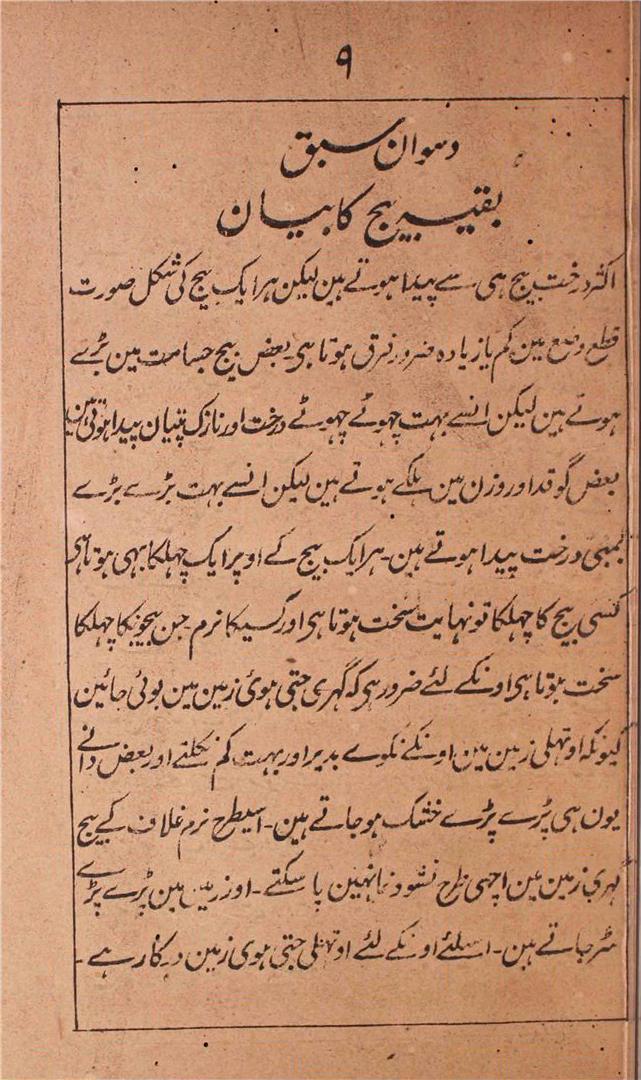 ۹
دسوان سبق
بقیہ بیج کا بیان
اکثر درخت بیج ہی سے پیدا ہوتے ہین لیکن ہر ایک بیج کی شکل صورت
قطع وضع مین کم یا زیادہ ضرور فرق ہوتا ہی۔ بعض بیج جسامت مین بڑے
ہوتے ہین لیکن انسے بہت چھوٹے چھوٹے درخت اور نازک پتیان پیدا ہوتی ہین
بعض گو قد اور وزن مین ہلکے ہوتے ہین لیکن انسے بہت بڑے بڑے
درخت پیدا ہوتے ہین۔ ہر ایک بیج کے اوپر ایک چہلکا بہی ہوتا ہی
کسی بیج کا چہلکا تو نہایت سخت ہوتا ہی اور کسیکا نرم۔ جن بیجونکا چہلکا
سخت ہوتا ہی اونکے لئے ضرور ہی کہ گہری جتی ہوئ زمین مین بوئی جائین
کیونکہ اوتہلی زمین مین اونکے کلوے بدیر اور بہت کم نکلتے اور بعض دانے
یون ہی پڑے پڑے خشک ہو جاتے ہین۔ اسیطرح نرم غلاف کے بیج
گہری زمین مین اچہی طرح نشو و نما نہین پا سکتے۔ اور زمین مین پڑے پڑے
سڑ جاتے ہین۔ اسلئے اونکے لئے اوتہلی جتی ہوی زمین درکار ہے۔